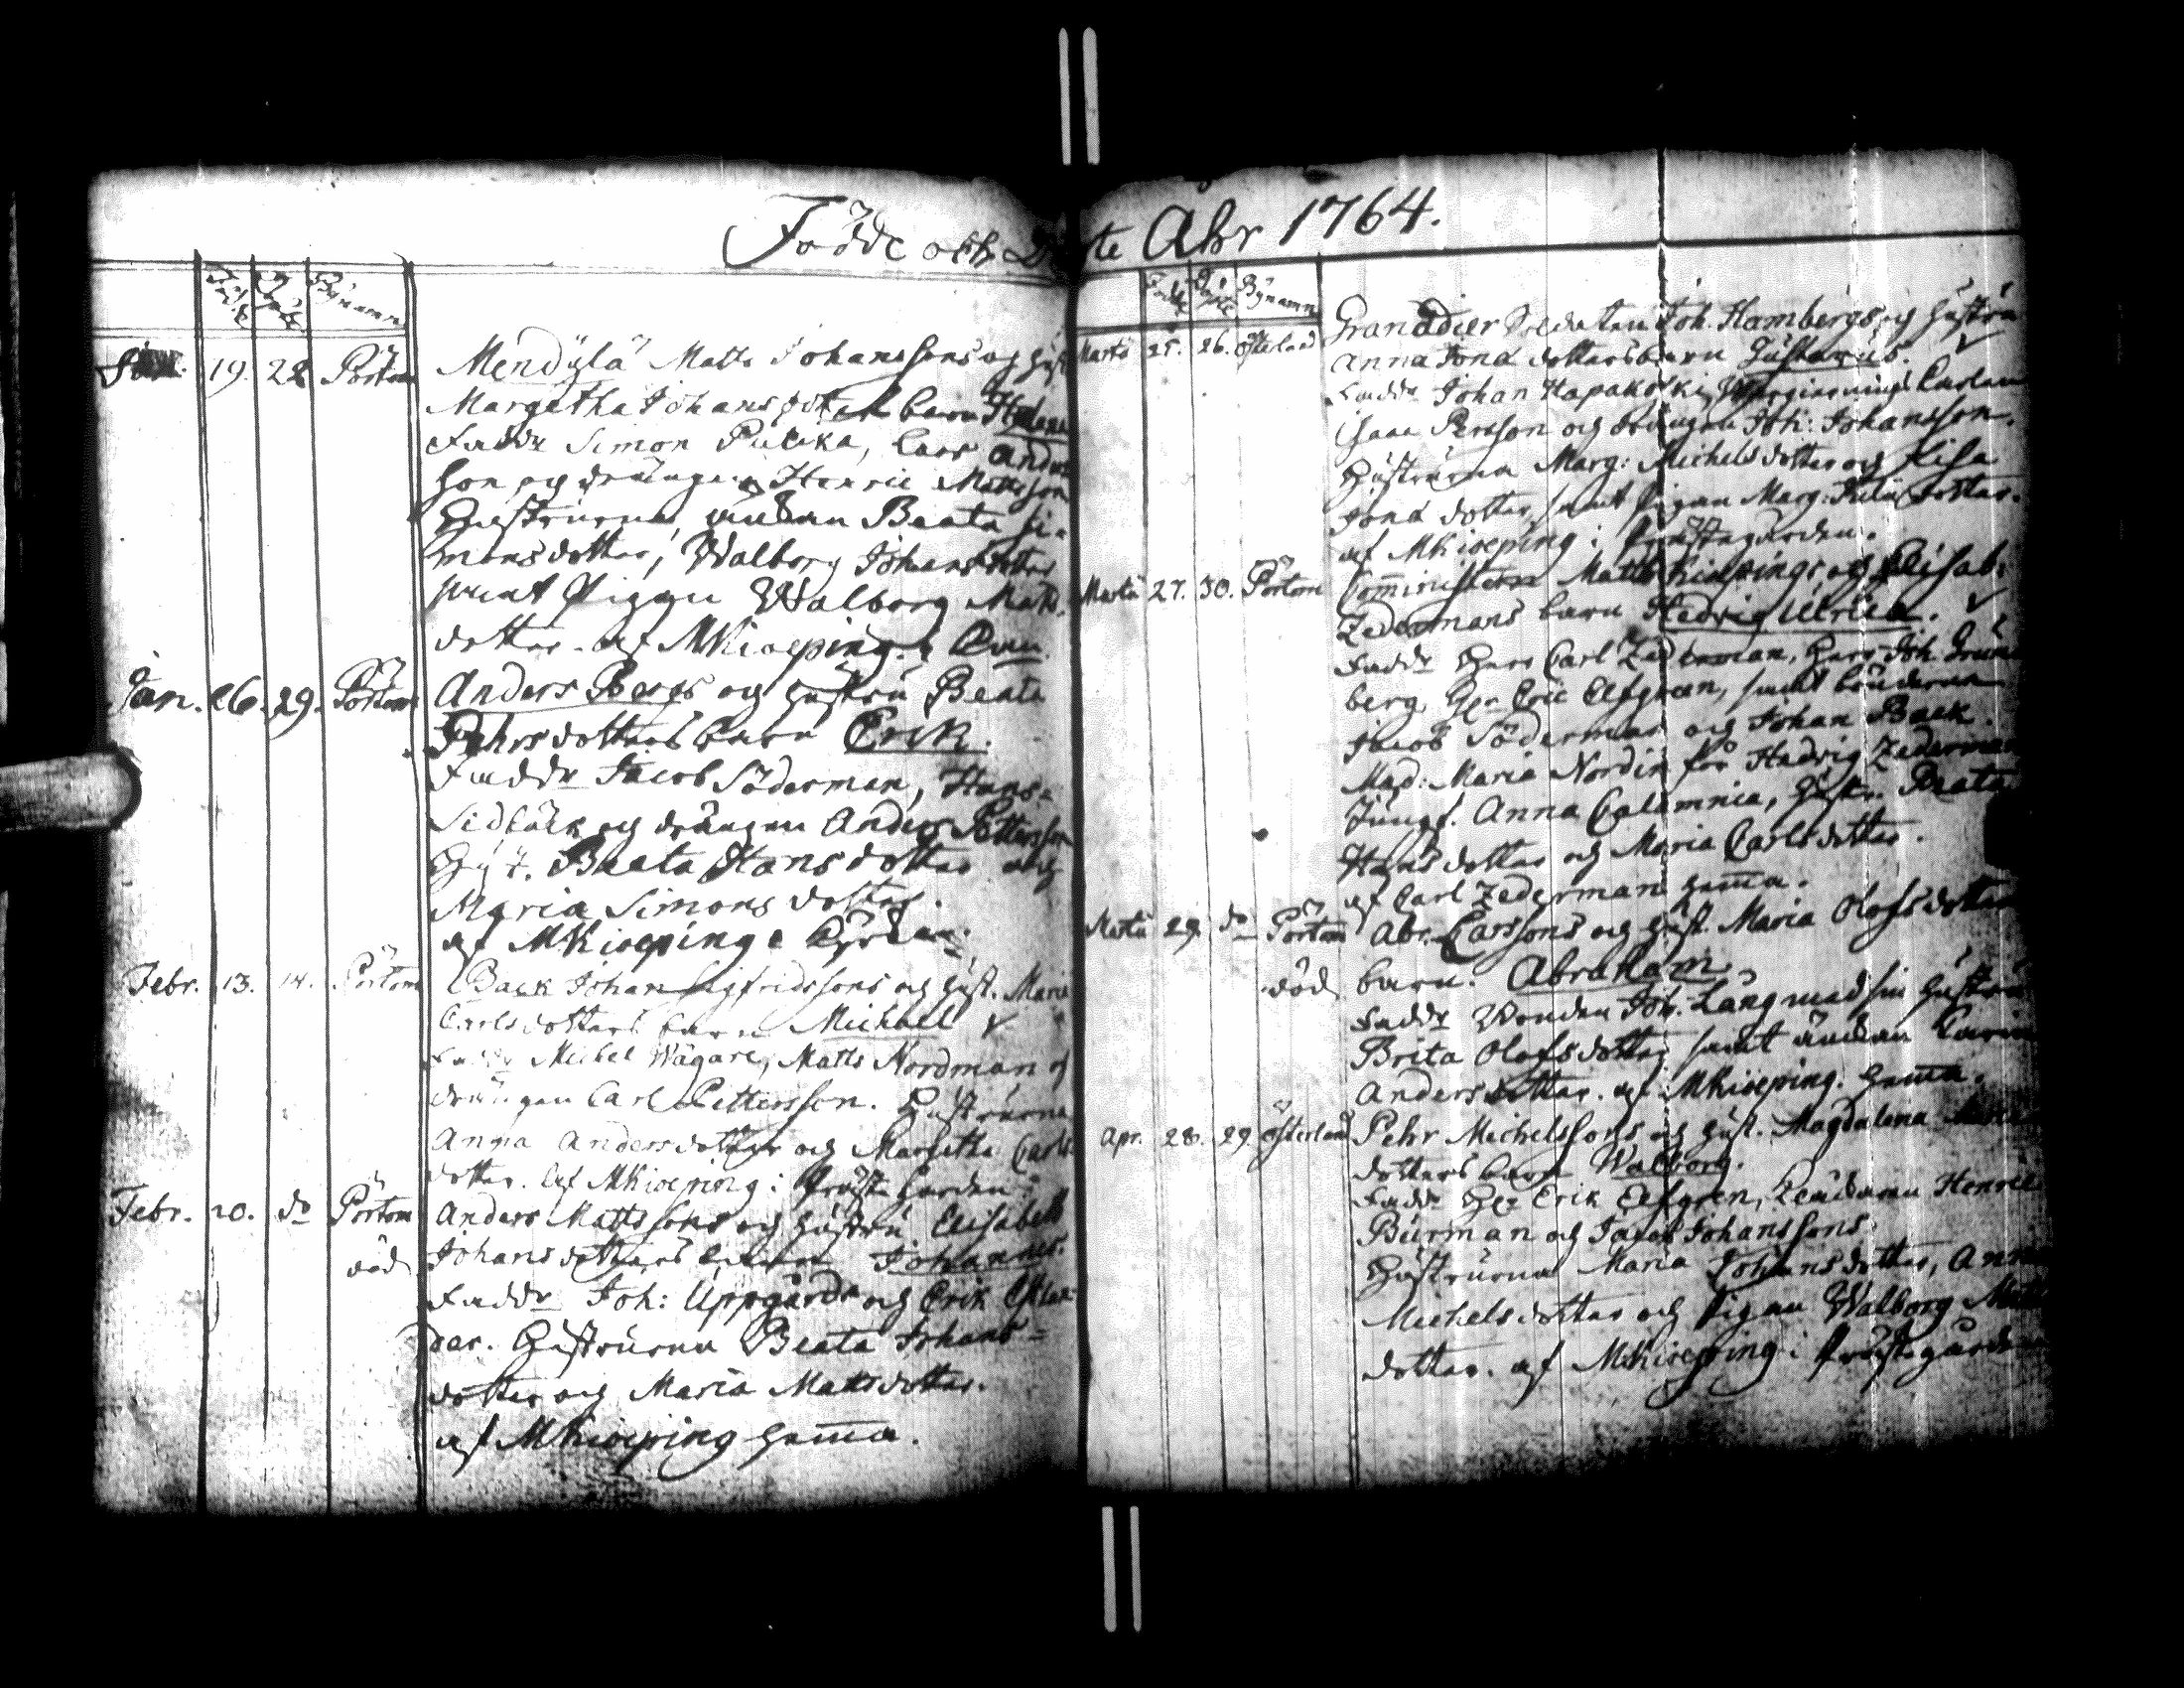 Födde och Döpte Ahr 1764.
Födde Döpte Bynamn
19. 22 Pörtom Mendylä Matts Johanssons og Hust
Margetha Johansdotters barn Helena
Faddr Simon Pukka, Lars Anders
son og drängen Henric Mattsson
Hustrurna, änkan Beata Si-
monsdotter, Walborg Johansdotter
samt Pigan Walborg Matts
dotter. af MKioeping.
Jan. 26. 29. Pörtom Anders Bergs og Hustru Beata
Pehrsdotters barn Erik.
Faddr Jacob Söderman, Hans
Sidbäck og drängen Anders Pettersson
Hust. Beata Hansdotter og
Maria Simonsdotter.
af MKioeping i Kyrkan.
Febr. 13. 14. Pörtom Back Johan Sigfridssons og Hust. Maria
Carlsdotters barn Michael
Faddr Michel Wägare, Matts Nordman og
drängen Carl Pettersson. Hustrurna
Anna Andersdotter og Margetha Carls
dotter. af MKioeping i Prästegården.
Febr. 20. do Pörtom Anders Mattssons og Hustru Elisabeth
död Johansdotters barn Johannes.
Faddr Joh: Uppgårda og Erik Öster
der. Hustrurna Beata Johans-
dotter og Maria Mattsdotter.
af MKioeping hemma.
Födde Döpte Bynamn
Martii 25. 26. Österland Granadier Soldaten Joh. Hambergs og Hustru
Anna Jons dotters barn Gustavus.
Faddr Johan Hapakoski, Carlan
Isaac Persson og drängen Joh: Johansson.
Hustrurna Marg: Michelsdotter og Lisa
Jons dotter, samt Pigan Marg: dotter.
af MKioeping i Prästegården.
Martii 27. 30. Pörtom Comministern Matts Kiöpings og Elisab:
Zedermans barn Hedvig Ulrica.
Faddr Herr Carl Zederman, Herr Joh. Grön
berg, Hr Eric Elfgreen, samt bönderna
Jacob Söderman og Johan Back.
Mad: Maria Nordin för Hedvig Zederman
Jungf. Anna Calamnia, Hustr. Beata
Hansdotter og Maria Carlsdotter.
af Carl Zederman hemma.
Martii 29. do Pörtom Abr. Carssons og Hust. Maria Olofsdotters
död barn. Abraham
Faddr Bonden Joh. Lång med sin Hustru
Brita Olofsdotter samt änkan Carin
Andersdotter. af MKioeping. hemma.
Apr. 28. 29 Österland Pehr Michelssons og Hust. Magdalena
dotters barn Walborg.
Faddr Hr Erik Elfgren, Henric
Burman og Jacob Johanssons.
Hustrurna Maria Johansdotter, Anna
Michelsdotter og Pigan Walborg Matts
dotter. af MKioeping i Prästegården